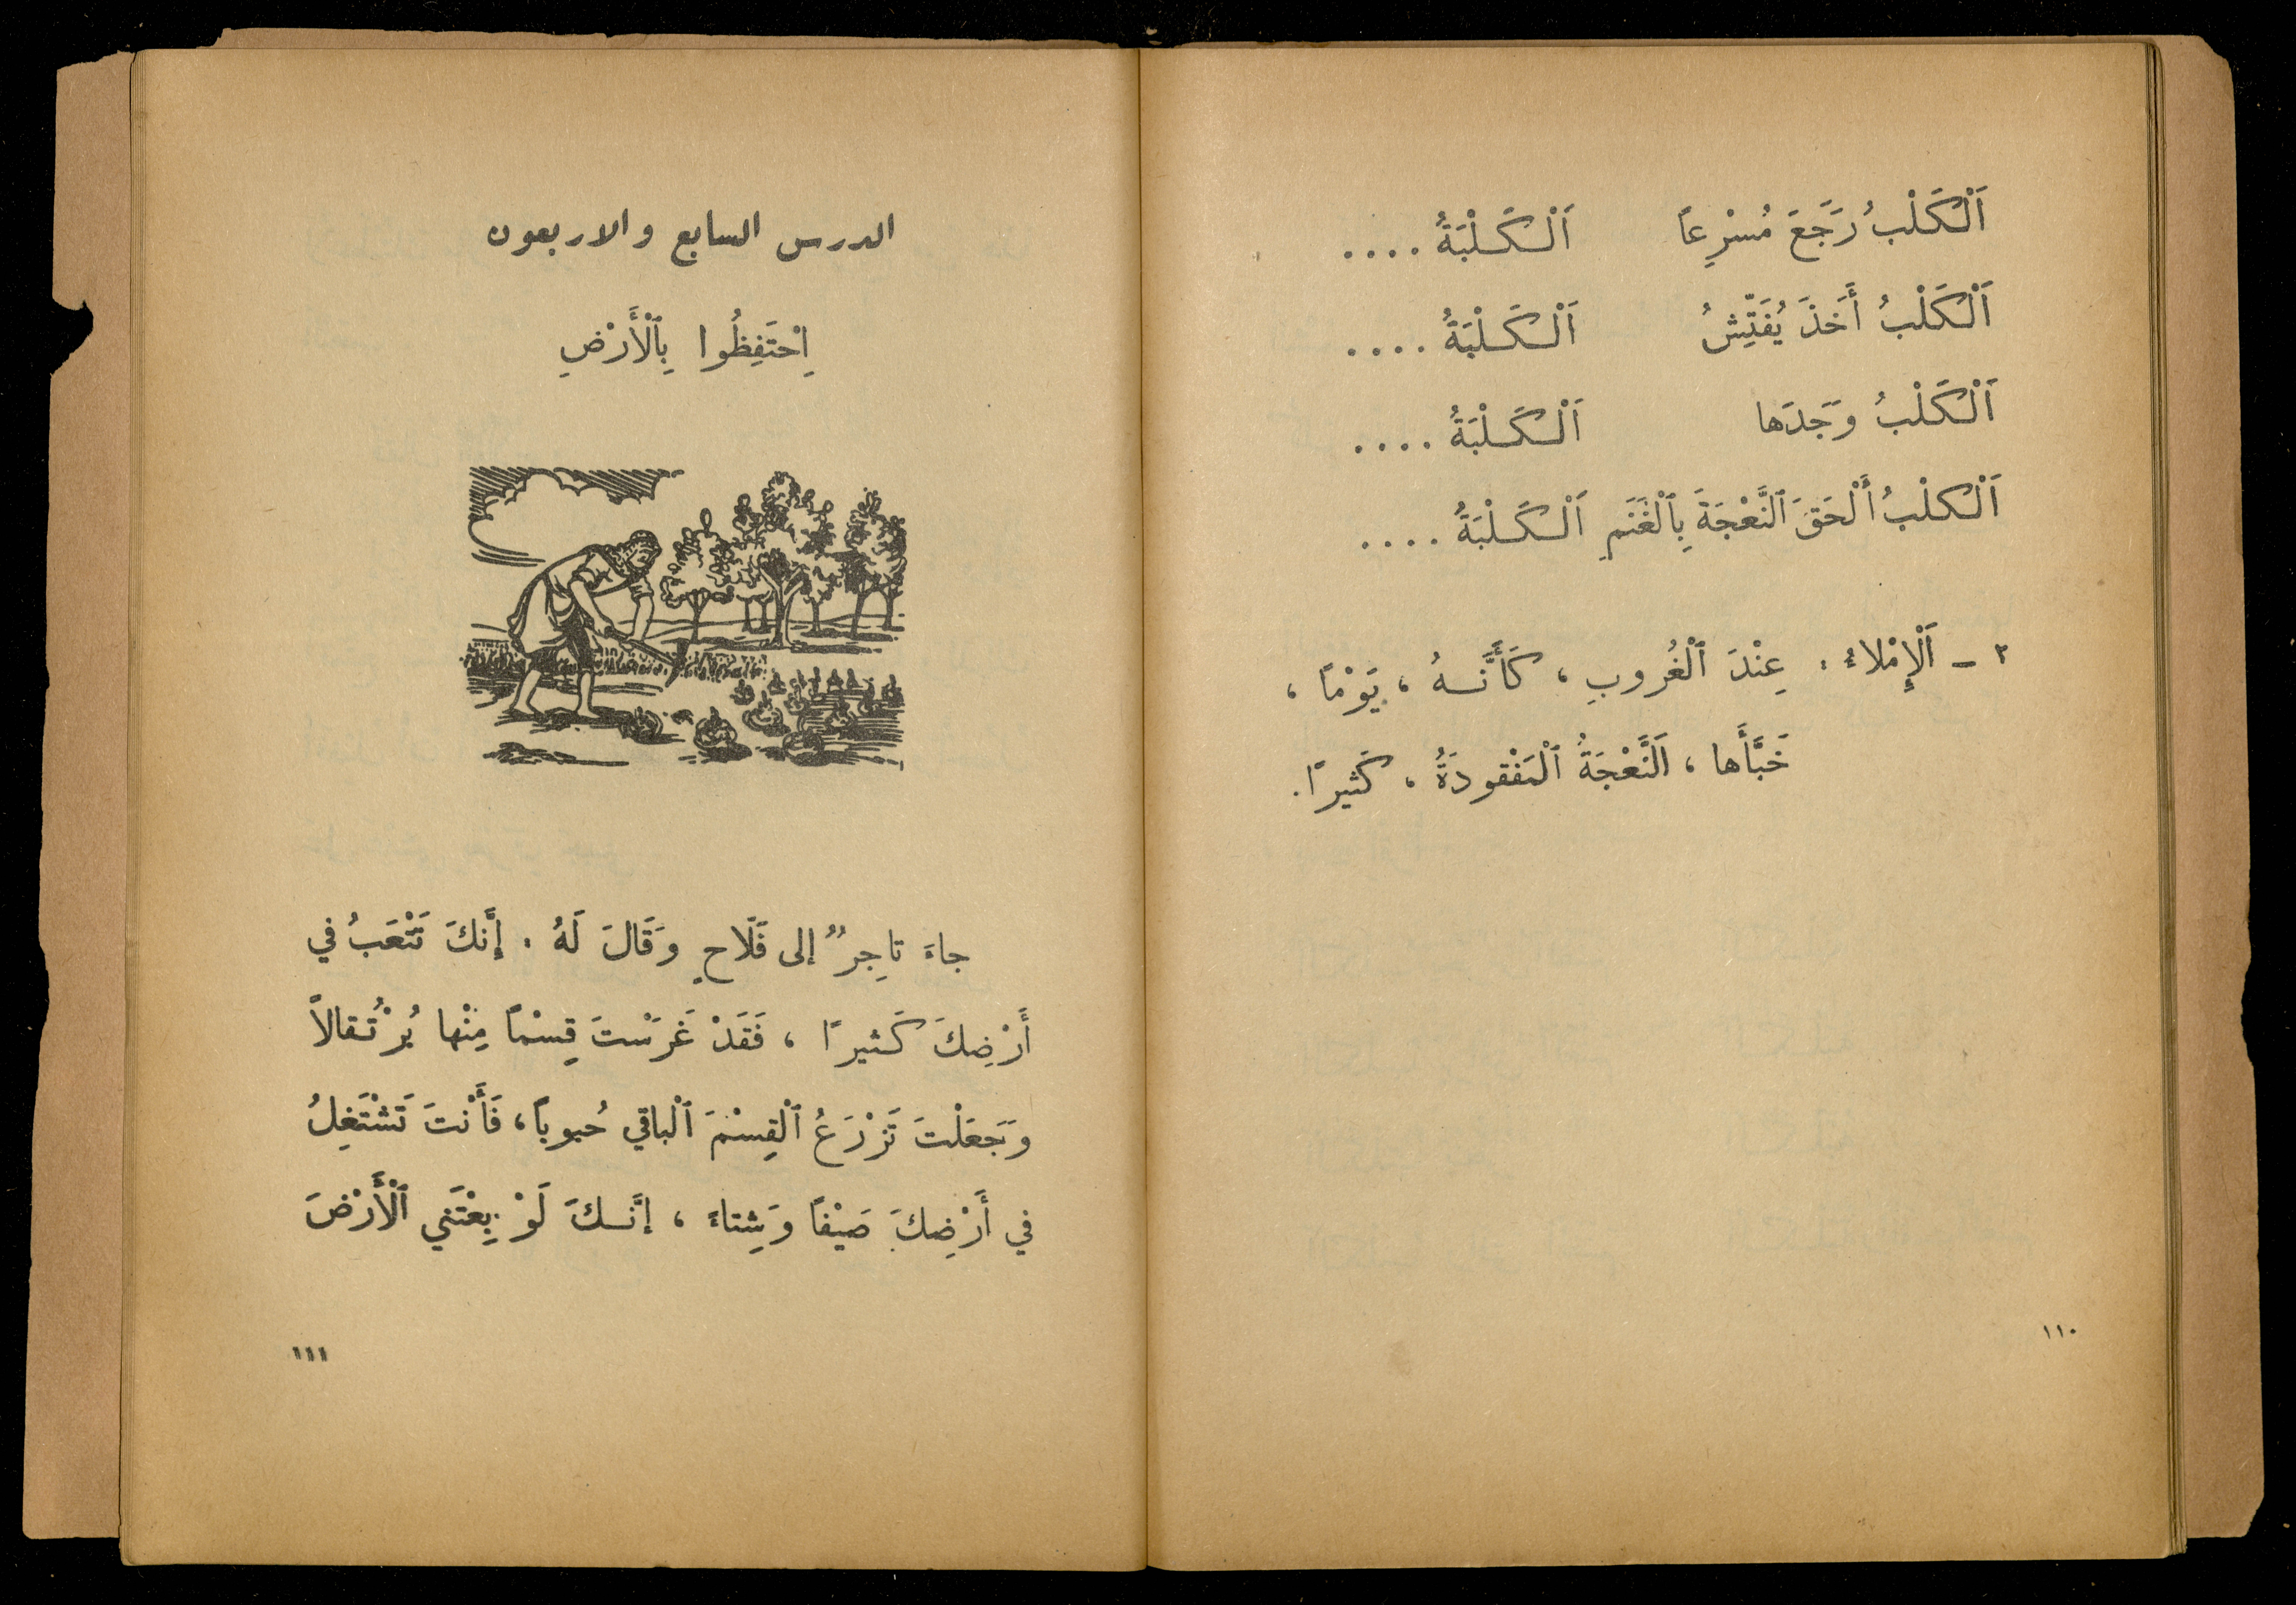 اَلْكَلْبُ رَجَعَ مُسْرِعاً اَلْكَلْبَةُ ....
اَلْكَلْبُ أَخَذَ يُفَتِّشُ اَلْكَلْبَةُ ....
اَلْكَلْبُ وَجَدَها اَلْكَلْبَةُ ....
اَلْكلْبُ أَلْحَقَ ٱلنَّعْجَةَ بِٱلْغَنَمِ اَلْكَلْبَةُ ....
٢ – اَلْإِمْلاءُ : عِنْدَ ٱلْغُروبِ ، كَأَنَّهُ ، يَوْمًا ،
خَبَّأَها ، اَلنَّعْجَةُ ٱلْمَفْقودَةُ ، كَثيرًا.
١١٠
الدرس السابع والاربعون
اِحْتَفِظُوا بِٱلْأَرْضِ
جاءَ تاجِرٌ إلى فَلّاحٍ وَقَالَ لَهُ : إنَّكَ تَتْعَبُ في
أَرْضِكَ كَثيرًا ، فَقَدْ غَرَسْتَ قِسْمًا مِنْها بُرْتُقالاً
وَجَعَلْتَ تَزْرَعُ ٱلْقِسْمَ ٱلْباقي حُبوباً، فَأَنْتَ تَشْتَغِلُ
في أَرْضِكَ صَيْفًا وَشِتاءً ، إنَّكَ لَوْ بِعْتَني ٱلْأَرْضَ
١١١